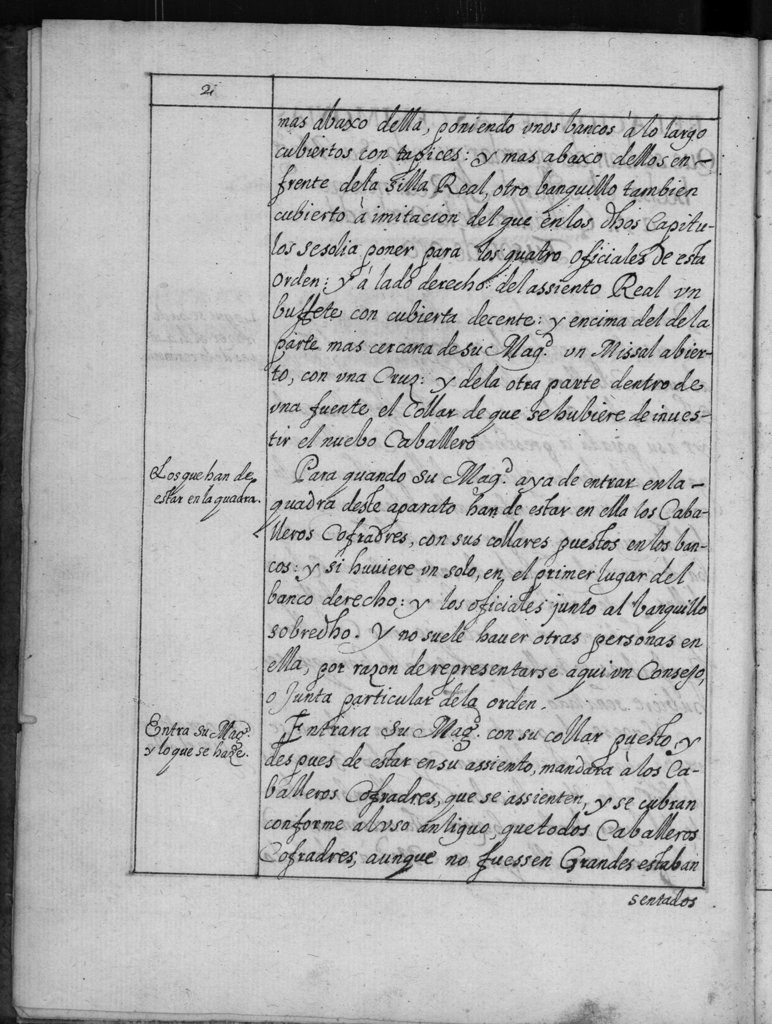 2
mas abaxo della, poniendo vnos bancos à lo largo
cubiertos con tapices: y mas abaxo dellos en-
frente dela silla Real, otro banquillo tambien
cubierto à imitacion del que en los dhos Capitu-
los se solia poner para los quatro oficiales de esta
orden: y à lado derecho del assiento Real vn
buffete con cubierta decente: y encima del dela
parte mas cercana de su Magd. vn Missal abier-
to, con vna Cruz: y dela otra parte dentro de
vna fuente el Collar de que se hubiere de inves-
tir el nuebo Caballero
Los que han de
estar en la quadra.
Para quando su Magd. aya de entrar en la
quadra deste aparato han de estar en ella los Caba-
lleros Cofradres, con sus collares puestos en los ban-
cos: y si huviere vn solo, en el primer lugar del
banco derecho: y los oficiales junto al banquillo
sobredho. Y no suele haver otras personas en
ella, por razon de representarse aqui vn Consejo,
o Junta particular dela orden.
Entra su Magd.
y lo que se haze.
Entrara su Magd. con su collar puesto, y
despues de estar en su assiento, mandarà à los Ca-
balleros Cofradres, que se assienten, y se cubran
conforme al vso antiguo, que todos Caballeros
Cofradres, aunque no fuessen Grandes estaban
sentados